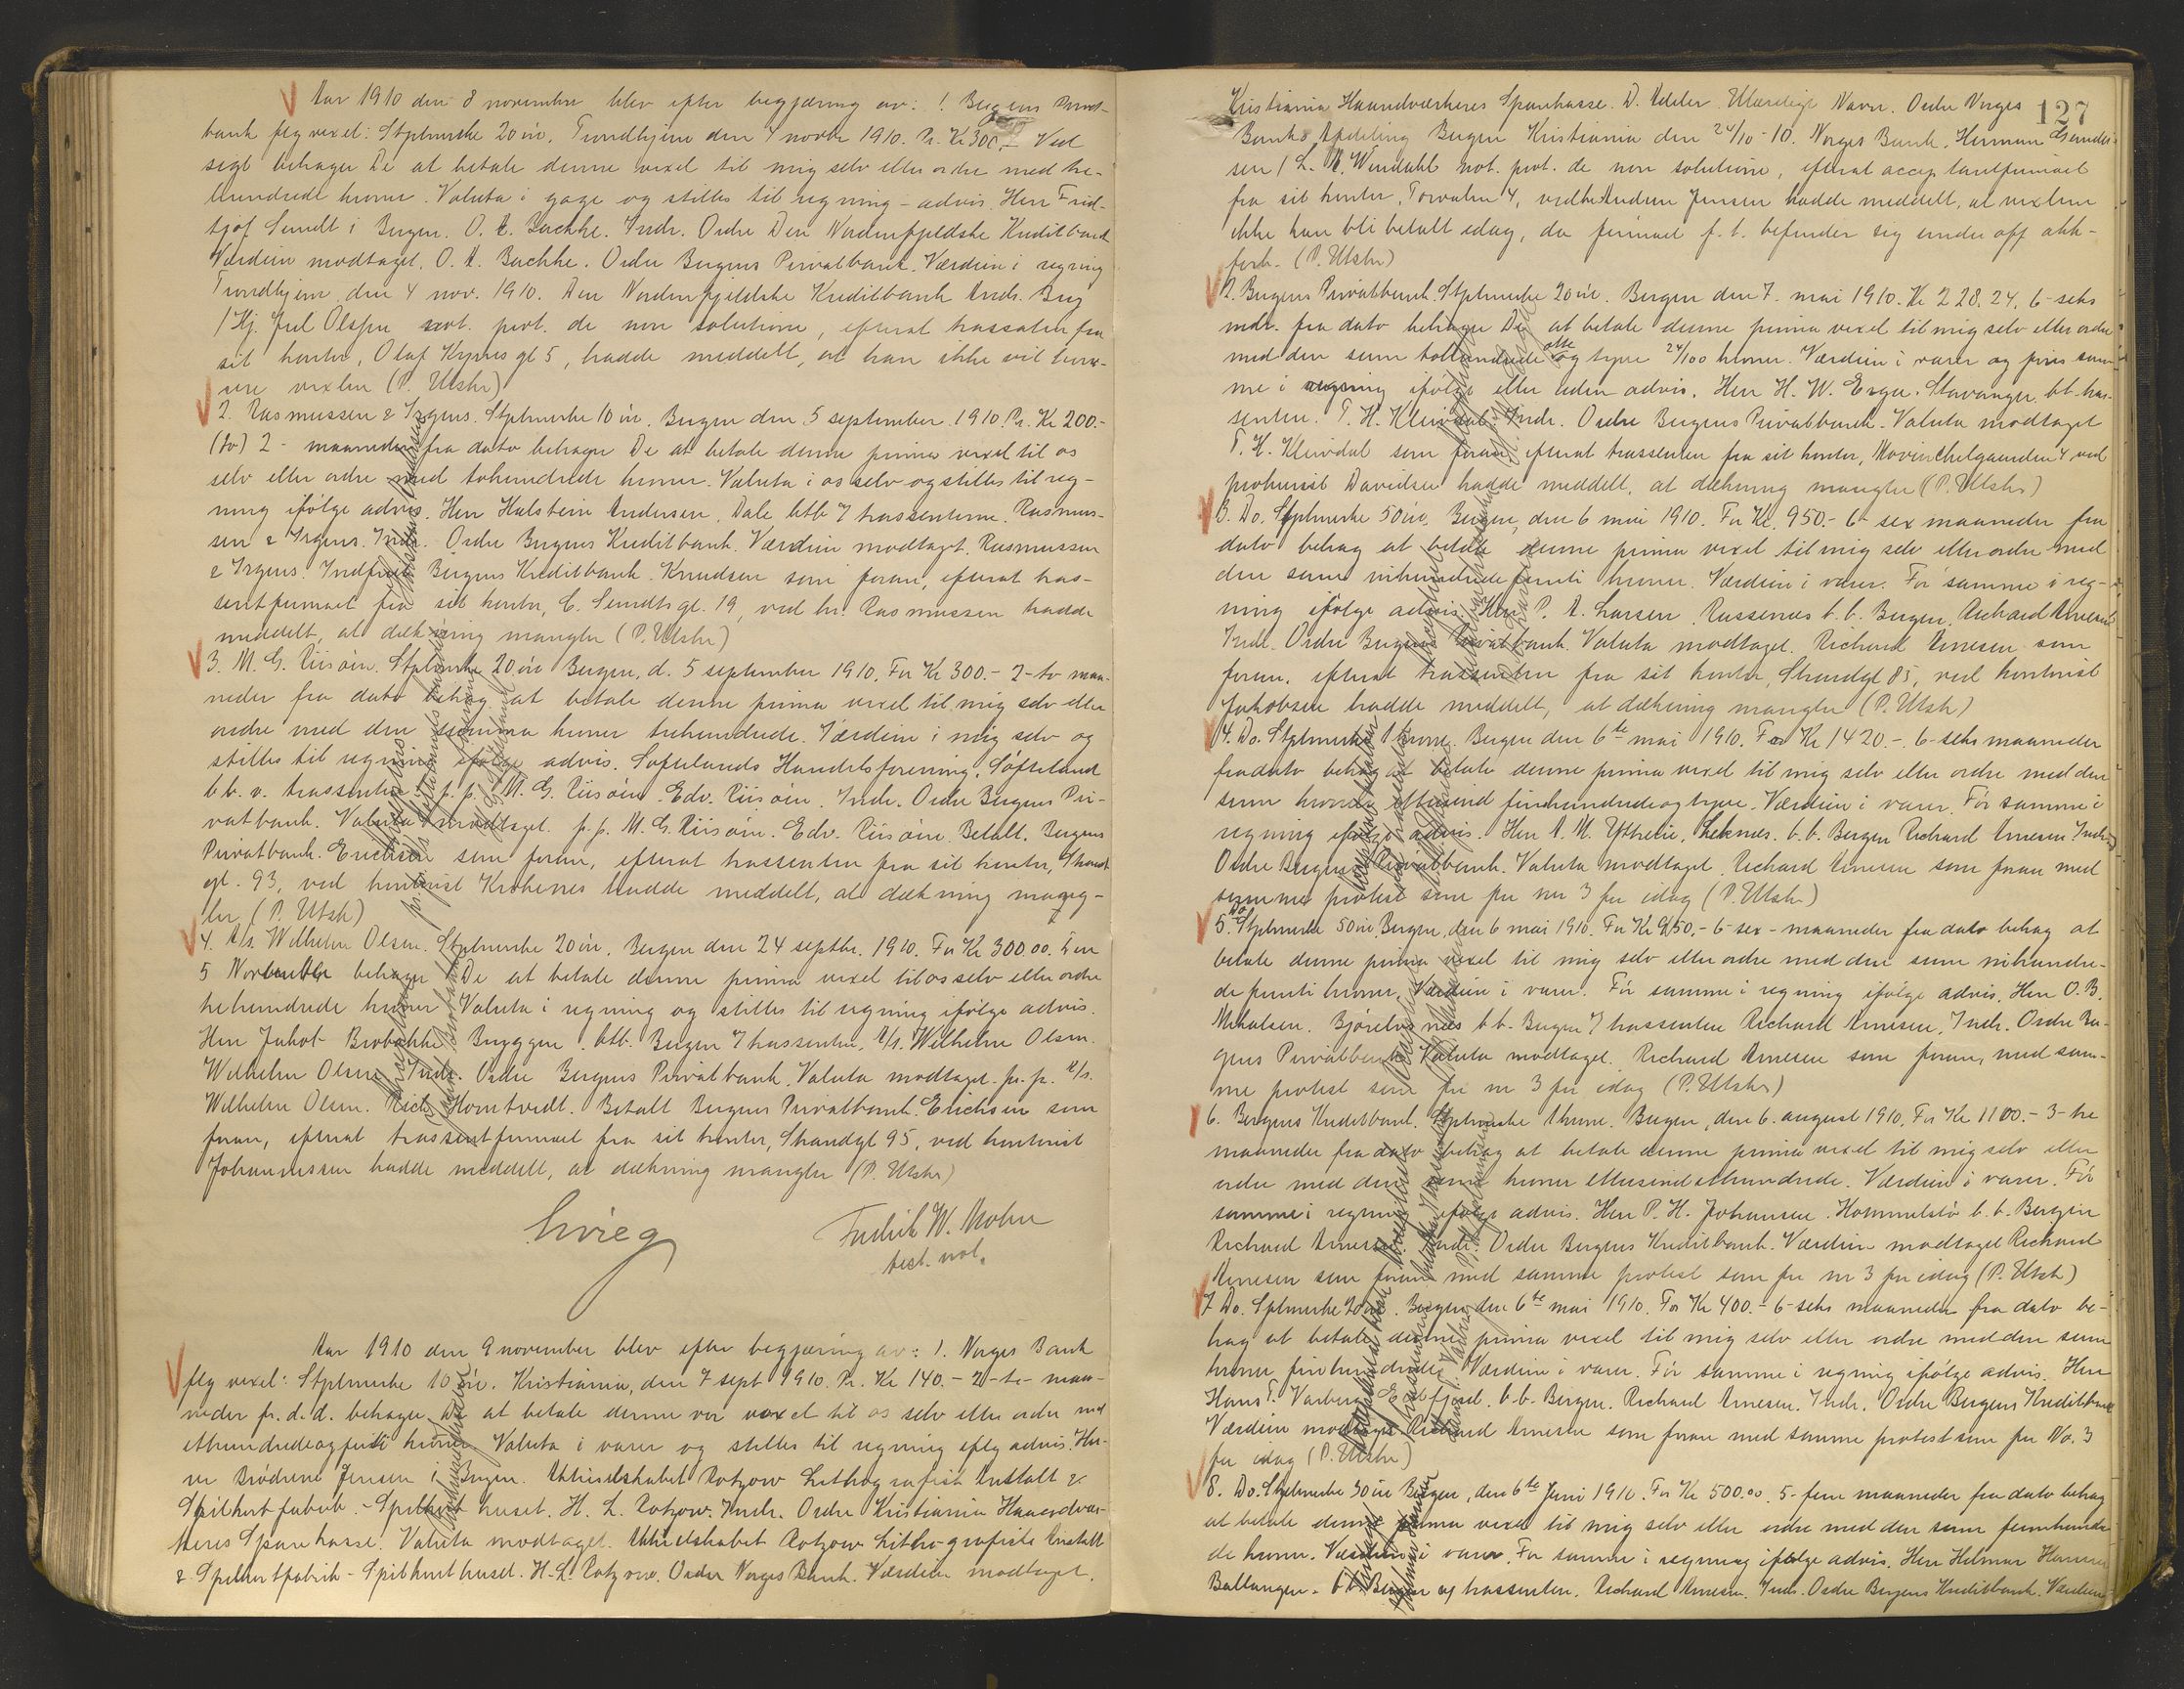 Aar 1910 den 8 november blev efter begjæring av: 1. Bergens Privat-
bank flg vexel: Stplmerke 20 øre. Trondhjem den 4 novbr 1910. Pr. Kr 300.- Ved
sigt behager De at betale denne vexel til mig selv eller ordre med tre-
hundrede kroner. Valuta i gage og stilles til regning - advis. Herr Frid-
tjof Sundt i Bergen. O. A. Bachke. Indr. Ordre Den Nordenfjeldske Kreditbank
Værdien modtaget. O. A. Bachke. Ordre Bergens Privatbank. Værdien i regning
Trondhjem den 4 nov. 1910. Den Nordenfjeldske Kreditbank Indr. Brig
/Hj. Juel Olsen not. prot. de non solutione, efterat trassaten fra
sit kontor, Olaf Kyrres gt 5, hadde meddelt, at han ikke vil hono-
rere vexlen (P. Utskr)
2. Rasmussen & Irgens. Stplmerke 10 øre. Bergen den 5 september 1910. Pr. Kr 200.-
(to) 2 - maaneder fra dato behager De at betale denne prima vexel til os
selv eller ordre med tohundrede kroner. Valuta i os selv og stilles til reg-
ning ifølge advis. Herr Halstein Andersen. Dale btb / trassenterne. Rasmus-
sen & Irgens. Indr. Ordre Bergens Kreditbank. Værdien modtaget. Rasmussen
& Irgens. Indfriet Bergens Kreditbank. Knudsen som foran, efterat tras-
sentfirmaet fra sit kontor, C. Sundts gt. 19, ved hr. Rasmussen hadde
meddelt, at dækning mangler (P. Utskr)
3. M. G. Riisøen. Stplmerke 20 øre Bergen, d. 5 september 1910. For Kr 300.- 2-to maa-
neder fra dato behag at betale denne prima vexel til mig selv eller
ordre med den summa kroner trehundrede. Værdien i mig selv og
stilles til regning ifølge advis. Søftelands Handelsforening, Søfteland
b.b. v. trassenten. p. p. M. G. Riisøen. Edv. Riisøen. Indr. Ordre Bergens Pri-
vatbank. Valuta modtaget. p. p. M. G. Riisøen. Edv. Riisøen. Betalt. Bergens
Privatbank. Erichsen som foran, efterat trassenten fra sit kontor, Strand
gt. 93, ved kontorist Krohnes hadde meddelt, at dækning mang-
ler (P. Utskr)
4. A/s. Wilhelm Olsen. Stplmerke 20 øre. Bergen den 24 septbr. 1910. For Kr 300.00. Den
5 November behager De at betale denne prima vexel til os selv eller ordre
trehundrede kroner Valuta i regning og stilles til regning ifølge advis.
Herr Jakob Brobakke Bryggen. btb. Bergen / trassenten. A/s. Wilhelm Olsen.
Wilhelm Olsen. Indr. Ordre Bergens Privatbank. Valuta modtaget. pr. pr. A/s.
Wilhelm Olsen. Rich. Homtvedt. Betalt Bergens Privatbank. Erichsen som
foran, efterat trassentfirmaet fra sit kontor, Strandgt 95, ved kontorist
Johannessen hadde meddelt, at dækning mangler (P. Utskr)
Grieg
Fredrik W. Mohn
test. not.
Aar 1910 den 9 november blev efter begjæring av: 1. Norges Bank
flg vexel: Stplmerke 10 øre. Kristiania, den 7 sept 1910. Pr. Kr 140.- 2-to- maa-
neder fr. d. d. behager De at betale denne vor vexel til os selv eller ordre med
ethundredeogfirti kroner Valuta i varer og stilles til regning iflg advis. Her-
rer Brødrene Jensen i Bergen. Aktieselskabet Rotzow Lithografisk Anstalt &
Spilkortfabrik. - Spilkorthuset. H. L. Rotzow. Indr. Ordre Kristiania Haandvær-
keres Sparekasse. Valuta modtaget. Aktieselskabet Rotzow Lithografiske Anstalt
& Spilkortfabrik - Spilkorthuset. H. L. Rotzow. Ordre Norges Bank. Værdien modtaget.
127
Kristiania Haandværkeres Sparekasse. D. Ulæselige Navn. Ordre Norges
Banks Afdeling Bergen Kristiania den 24/10-10. Norges Bank. Herman Gunder-
sen / L. M. Wendahl not. prot. de non solutione, efterat acceptantfirmaet
fra sit kontor, Torvalm 4, ved Jensen hadde meddelt, at vexlen
ikke kan bli betalt idag, da firmaet f. t. befinder sig under off akk-
forh. (P. Utskr)
2. Bergens Privatbank. Stplmerke 20 øre. Bergen den 7. mai 1910. Kr 228.24. 6-seks
mdr. fra dato behager De at betale denne prima vexel til mig selv eller ordre
med den sum tohundrede otte og tyve 24/100 kroner. Værdien i varer og føres sam-
me i regning ifølge eller uden advis. Herr H. W. Erga. Stavanger. bt. tras-
senten. T. H. Kleivdal. Indr. Ordre Bergens Privatbank. Valuta modtaget
T. H. Kleivdal som foran, efterat trassenten fra sit kontor, 4 ved
prokurist Davidsen hadde meddelt, at dækning mangler (P. Utskr)
3. Do. Stplmerke 50 øre. Bergen, den 6 mai 1910. For Kr. 950.- 6- sex maaneder fra
dato behag at betale denne prima vexel til mig selv eller ordre med
den sum nihundredefemti kroner. Værdien i varer. Før samme i reg-
ning ifølge advis. Herr P. A. Larsen Russenes b. b. Bergen. Richard Arnesen
Indr. Ordre Bergens Privatbank. Valuta modtaget. Richard Arnesen som
foran, efterat trassenten fra sit kontor, Strandgt 85, ved kontorist
Jakobsen hadde meddelt, at dækning mangler (P. Utskr)
4. Do. Stplmerke 1 krone. Bergen den 6te mai 1910. For Kr 1420.-. 6-seks maaneder
fra dato behag at betale denne prima vexel til mig selv eller ordre med den
sum kroner ettusind firehundredeogtyve. Værdien i varer. Før samme i
regning ifølge advis. Herr A. M. Yttreie, Leknes. b. b. Bergen Richard Arnesen Indr.
Ordre Bergens Privatbank. Valuta modtaget. Richard Arnesen som foran med
samme protest som for nr 3 for idag (P. Utskr.)
5. Do Stplmerke 50 øre. Bergen, den 6 mai 1910. For Kr 950.- 6- sex - maaneder fra dato behag at
betale denne prima vexel til mig selv eller ordre med den sum nihundre-
de femti kroner. Værdien i varer. Før samme i regning ifølge advis. Herr O. B.
Mikalsen. Bjørelvsnes b. b. Bergen / trassenten Richard Arnesen. Indr. Ordre Ber-
gens Privatbank. Valuta modtaget. Richard Arnesen som foran, med sam-
me protest som for nr 3 for idag (P. Utskr)
6. Bergens Kreditbank. Stplmerke 1 krone. Bergen, den 6. august 1910. For Kr. 1100.- 3- tre
maaneder fra dato behag at betale denne prima vexel til mig selv eller
ordre med den sum kroner ettusindethundrede. Værdien i varer. Før
samme i regning ifølge advis. Herr P. H. Johansen. Hommelstø b. b. Bergen
Richard Arnesen. Indr. Ordre Bergens Kreditbank. Værdien modtaget Richard
Arnesen som foran med samme protest som for nr 3 for idag (P. Utskr)
7. Do. Stplmerke 20 øre. Bergen den 6te mai 1910. For Kr 400.- 6-seks maaneder fra dato be-
hag at betale denne prima vexel til mig selv eller ordre med den sum
kroner firehundrede. Værdien i varer. Før samme i regning ifølge advis. Herr
Hans T. Varberg. Eidsfjord. b. b. Bergen. Richard Arnesen. Indr. Ordre Bergens Kreditbank
Værdien modtaget Richard Arnesen som foran med samme protest som for No. 3
for idag (P. Utskr)
8. Do. Stplmerke 30 øre Bergen, den 6te Juni 1910. For Kr 500.00. 5- fem maaneder fra dato behag
at betale denne prima vexel til mig selv eller ordre med den sum femhundre-
de kroner. Værdien i varer. Før samme i regning ifølge advis. Herr Helmar Hansen
Ballangen. b. b. Bergen af trassenten. Richard Arnesen. Indr. Ordre Bergens Kreditbank. Værdien